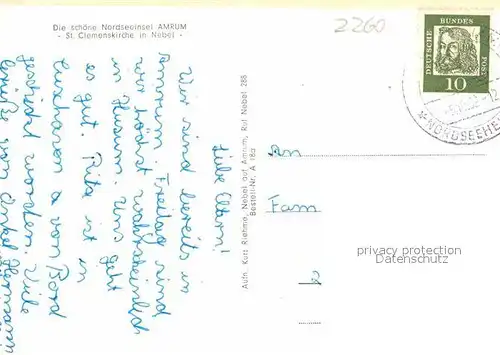 Die schöne Nordseeinsel AMRUM
- St. Clemenskirche in Nebel -
2260
DEUTSCHE BUNDES POST
10
NORDSEEHE
Liebe Eltern!
Wir sind bereits in
Amrum. Freitag sind
wir höchst wahrscheinlich
in Husum. Uns geht
es gut. ist in
Cuxhaven von Bord
geschickt worden. Viele
Grüße von Onkel Hermann
Aufn. Kurt Riethme, Nebel auf Amrum, Ruf Nebel 288
Bestell-Nr. A 18a
An
Fam
privacy protection
Datenschutz